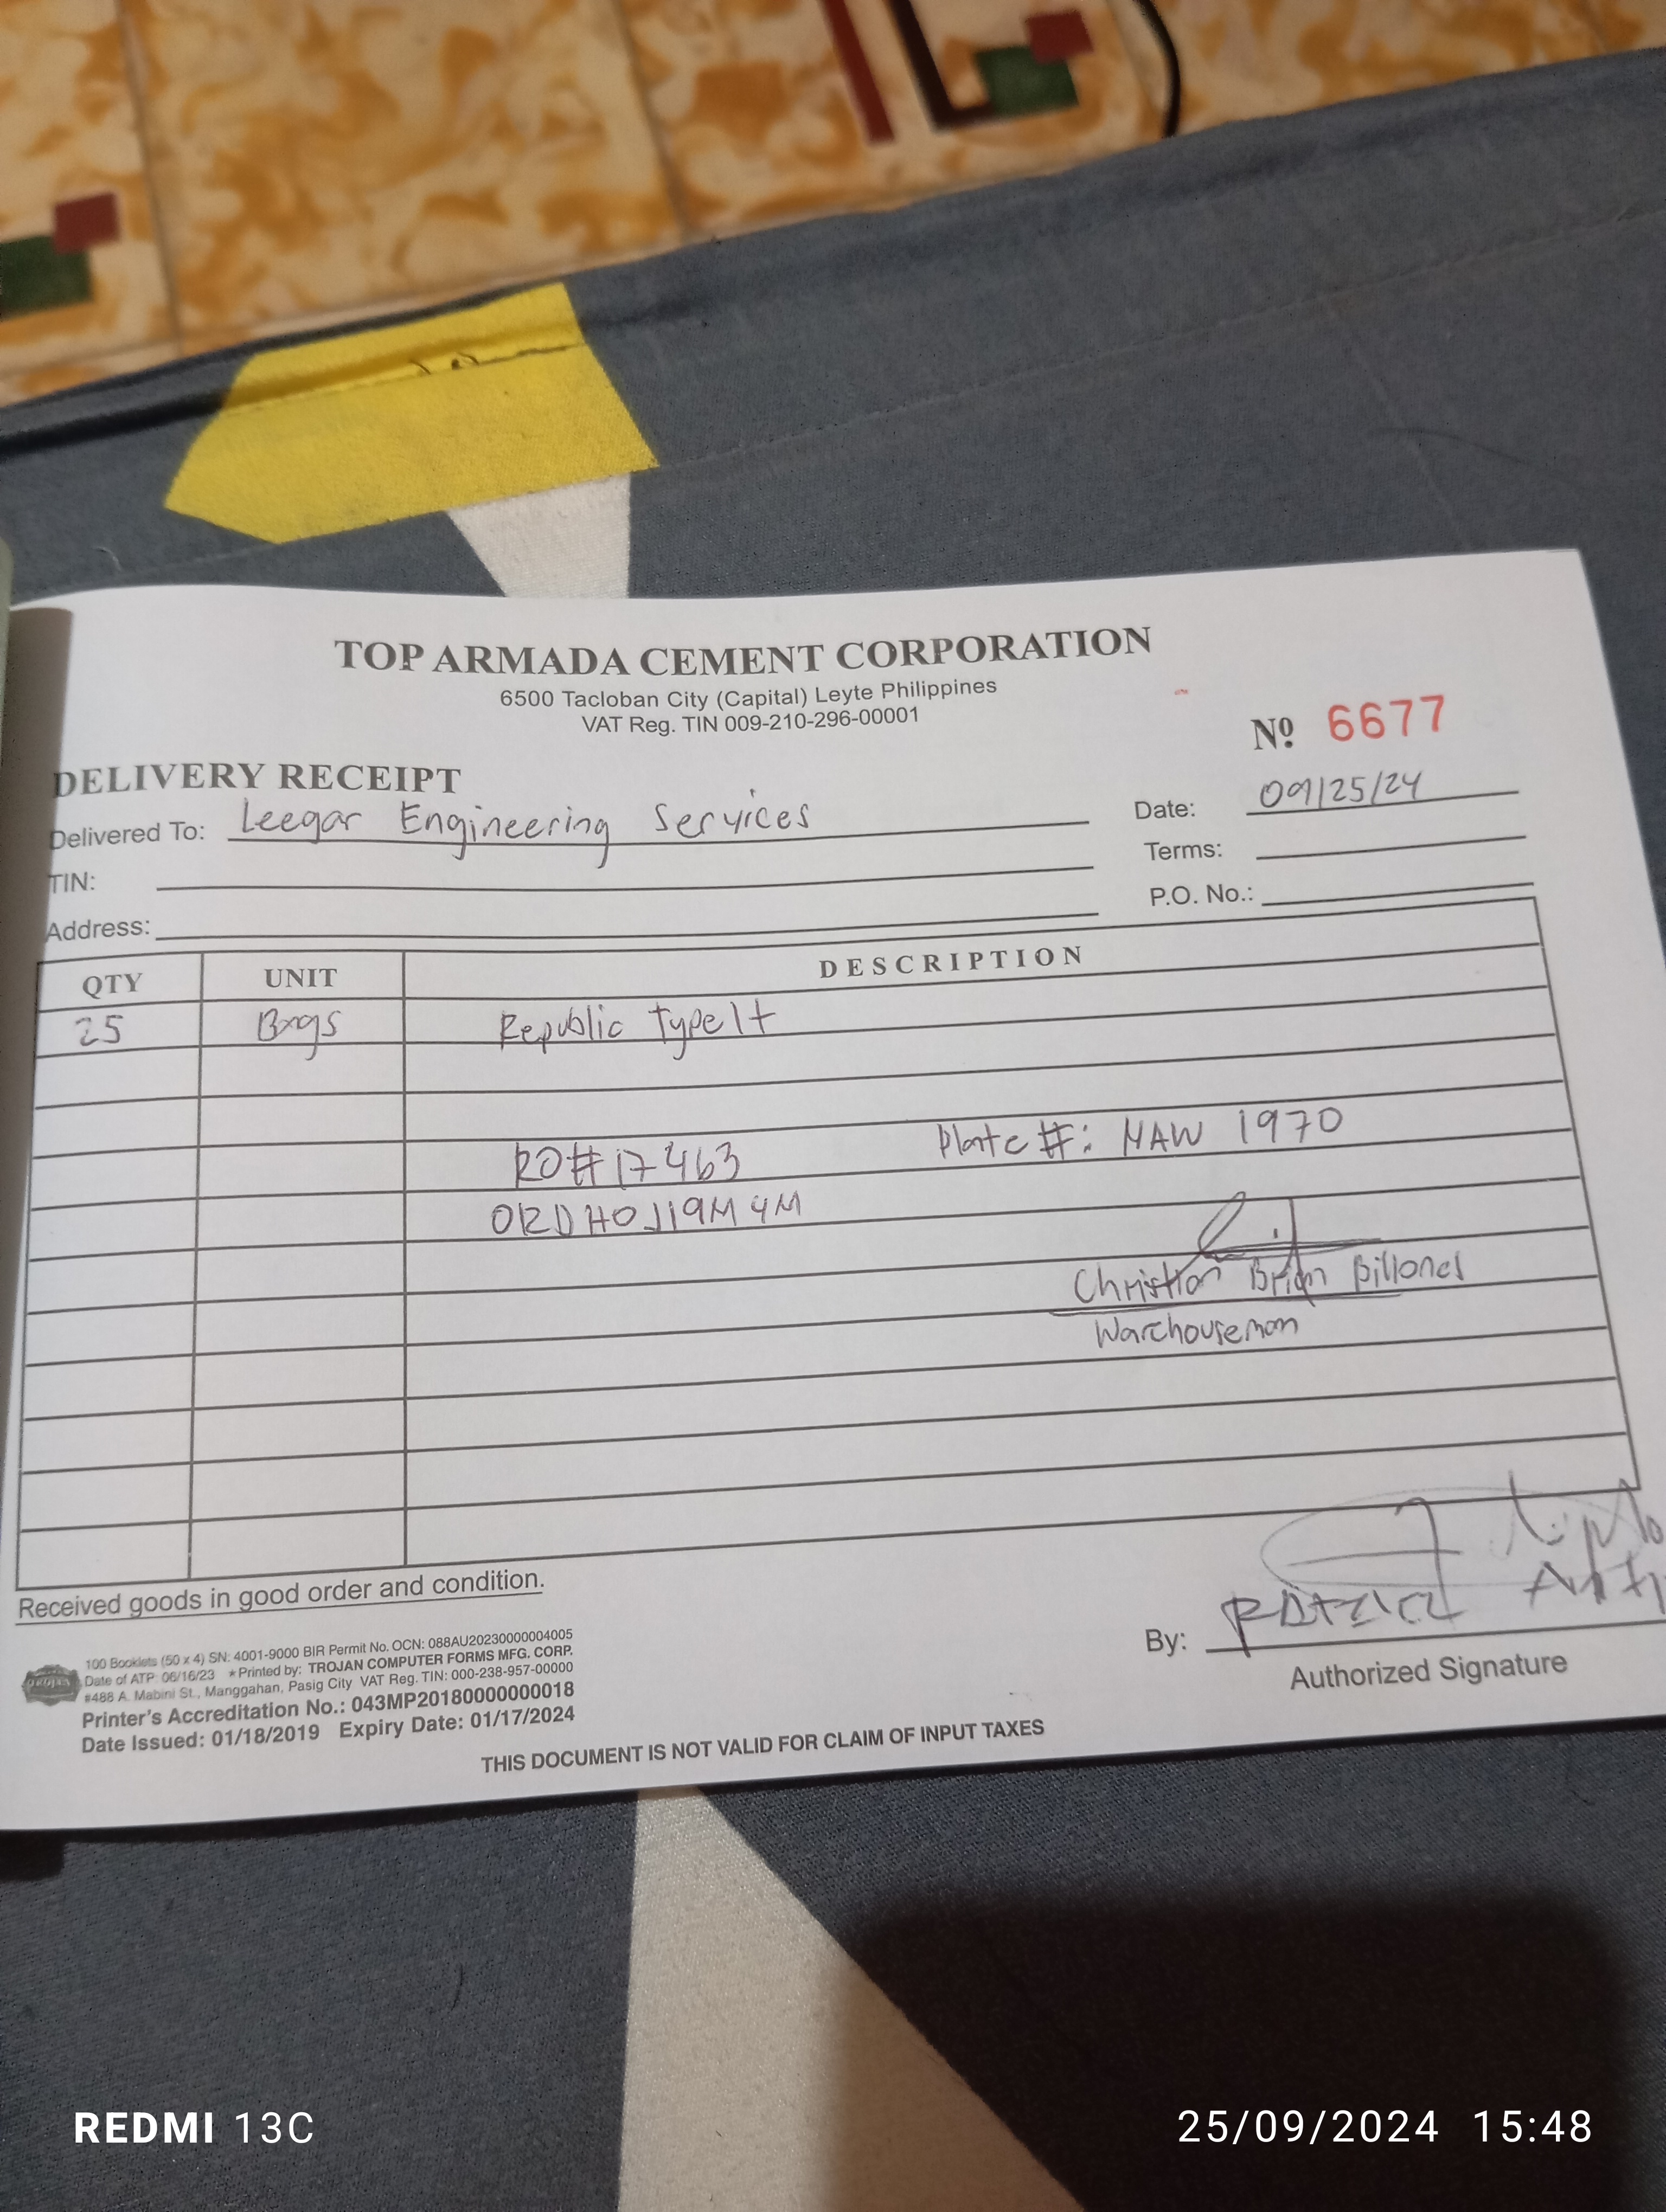 TOP ARMADA CEMENT CORPORATION
6500 Tacloban City (Capital) Leyte Philippines
VAT Reg. TIN 009-210-296-00001
Nº 6677
DELIVERY RECEIPT
Delivered To: Leegar Engineering Services
Date: 09/25/24
TIN:
Terms:
Address:
P.O. No.:
QTY UNIT DESCRIPTION
25 Bags Republic Type 1t
RO# 17463 Plate #: NAW 1970
ORDH0J19M4M
Christian Brian Billones
Warehouseman
Received goods in good order and condition.
By:
Authorized Signature
100 Booklets (50 x 4) SN: 4001-9000 BIR Permit No. OCN: 088AU20230000004005
Date of ATP: 06/16/23 *Printed by: TROJAN COMPUTER FORMS MFG. CORP.
#488 A. Mabini St., Manggahan, Pasig City VAT Reg. TIN: 000-238-957-00000
Printer's Accreditation No.: 043MP20180000000018
Date Issued: 01/18/2019 Expiry Date: 01/17/2024
THIS DOCUMENT IS NOT VALID FOR CLAIM OF INPUT TAXES
REDMI 13C
25/09/2024 15:48